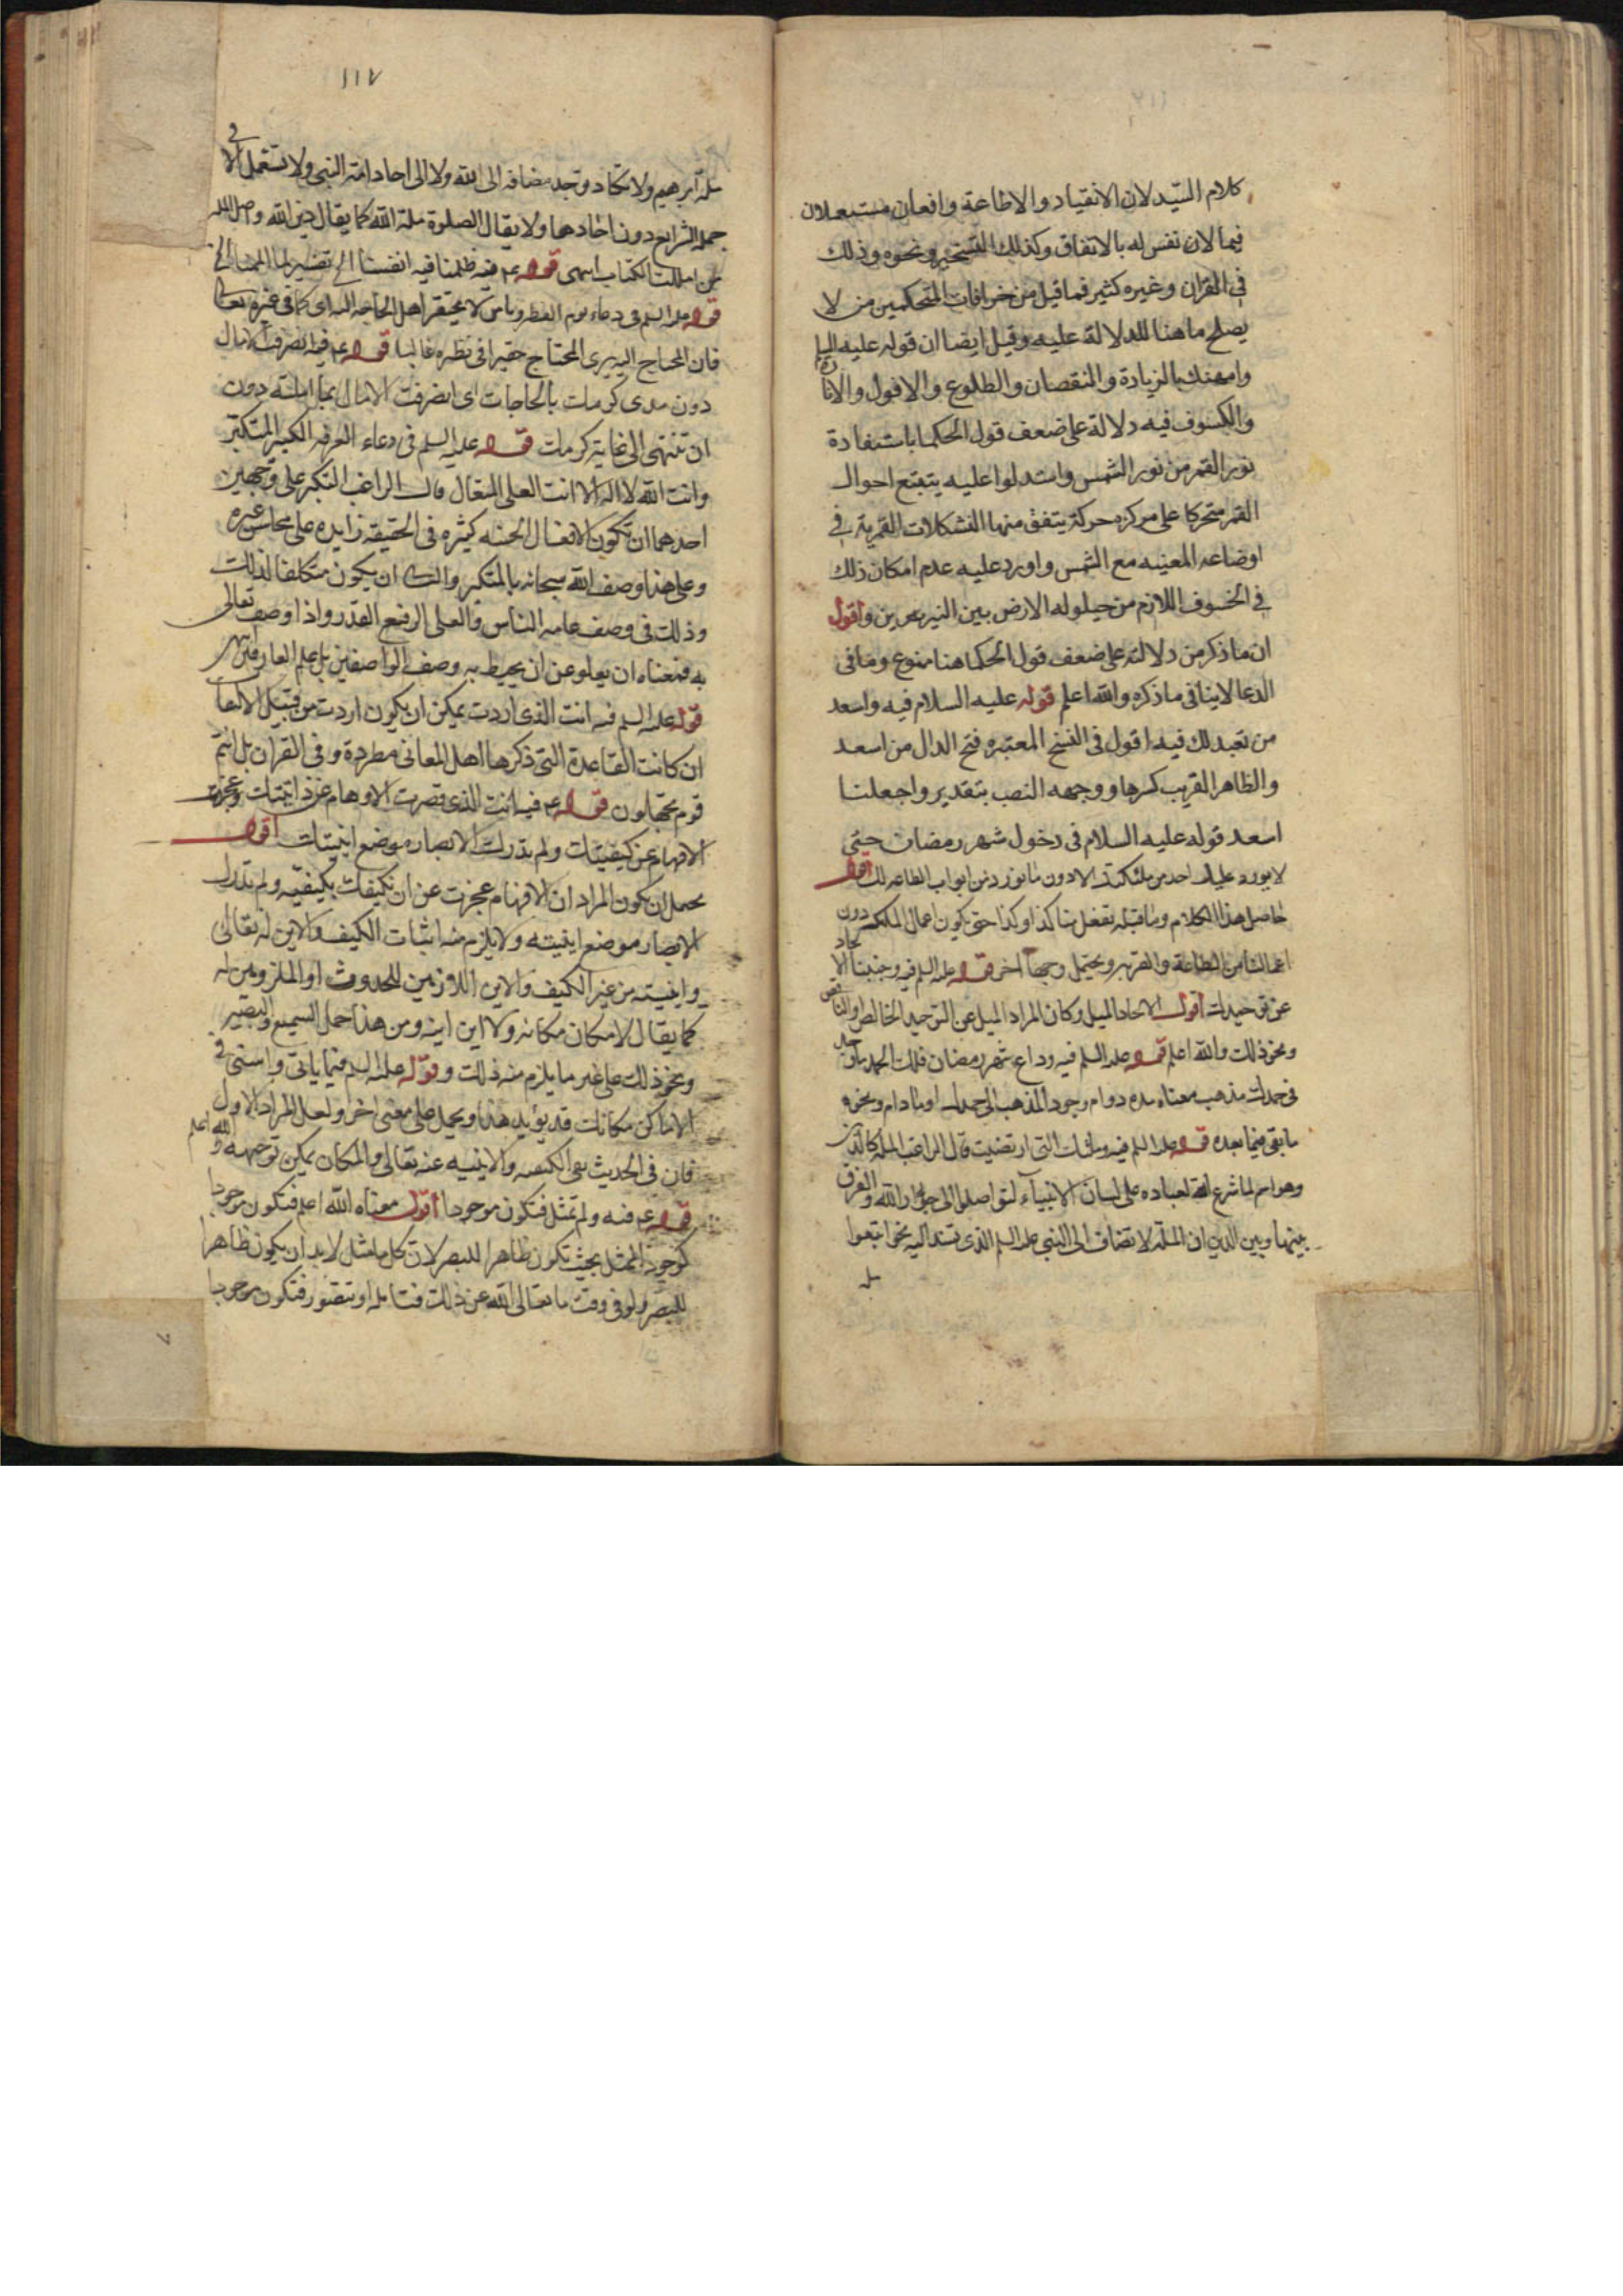 كلام السيد لان الانقياد والاطاعة واذعان مستعملان
فيما لان نفس له بالاتفاق وكذلك التسخير ونحوه وذلك
في القران وغيره كثير فما قيل من خرافات المتحكمين من لا
يصلح ما هنا للدلالة عليه وقيل ايضا ان قوله عليه السلم
وامتهنك بالزيادة والنقصان والطلوع والافول والانارة
والكسوف فيه دلالة على ضعف قول الحكما باستفادة
نور القمر من نور الشمس واستدلوا عليه بتتبع احوال
القمر متحركا على مركزه حركة يتفق منها التشكلات القمرية في
اوضاعه المعينه مع الشمس واورد عليه عدم امكان ذلك
في الخسوف اللازم من حيلوله الارض بين النيرين واقول
ان ما ذكر من دلالته على ضعف قول الحكما هنا ممنوع وما في
الدعا لاينافي ما ذكره والله اعلم قوله عليه السلام فيه واسعد
من تعبد لك فيه اقول في النسخ المعتبره فتح الدال من اسعد
والظاهر القريب كسرها ووجهه النصب بتقدير واجعلنا
اسعد قوله عليه السلام في دخول شهر رمضان حتى
لا يورد عليك احد من ملئكتك الا دون ما نورد من ابواب الطاعه لك اقول
حاصل هذا الكلام وما قبله تفعل بنا كذا وكذا حتى يكون اعمال الملئكه دون
اعمالنا من الطاعة والقربه ويحتمل وجها اخر قوله عليه السلم فيه وجنبنا الالحاد
عن توحيدك اقول الالحاد الميل وكان المراد الميل عن التوحيد الخالص والناقص
ونحو ذلك والله اعلم قوله عليه السلم فيه وداع شهر رمضان فلك الحمد ما وجد
في حمدك مذهب معناه مده دوام وجود المذهب الى حمدك او ما دام ونحوه
ما بقي فيما بعده قوله عليه السلم فيه وملتك التي ارتضيت قال الراغب الملة كالدين
وهو اسم لما شرع الله لعباده على لسان الانبياء ليتواصلوا الى جوار الله والفرق
بينها وبين الدين ان الملة لا تضاف الى النبي عليه السلم الذي تسند اليه نحو اتبعوا
ملة
١١٧
ملة ابرهيم ولا تكاد توجد مضافه الى الله ولا الى احاد امة النبي ولا تستعمل الا في
جملة الشرايع دون احادها ولا يقال الصلوة ملة الله كما يقال دين الله واصل المله
من امللت الكتاب انتهى قوله عم فيه ظلمنا فيه انفسنا الخ تفسير لما المنا الخ
قوله عليه السلم في دعاء يوم الفطر ويا من لا يحتقر اهل الحاجه اليه اي كما في غيره تعالى
فان المحتاج اليه يرى المحتاج حقيرا في نظره غالبا قوله عم فيه انصرفت الامال
دون مدى كرمك بالحاجات اي انصرفت الامال بما املته دون
ان تنتهي الى غاية كرمك قوله عليه السلم في دعاء العرفه الكبير المتكبر
وانت الله لا اله الا انت العلى المتعال قال الراغب التكبر على وجهين
احدهما ان تكون الافعال الحسنه كثيره في الحقيقه زايده على محاسن غيره
وعلى هذا وصف الله سبحانه بالمتكبر والثانى ان يكون متكلفا لذلك
وذلك في وصف عامه الناس والعلى الرفيع القدر واذا وصف تعالى
به فمعناه ان يعلو عن ان يحيط به وصف الواصفين بل علم العارفين
قوله عليه السلم فيه انت الذي اردت يمكن ان يكون اردت من قبيل الالتفات
ان كانت القاعدة التي ذكرها اهل المعاني مطردة وفي القران بل انتم
قوم تجهلون قوله عم فيه انت الذي قصرت الاوهام عن ذاتيتك وعجزت
الافهام عن كيفيتك ولم تدرك الابصار موضع اينيتك اقول
يحتمل ان يكون المراد ان الافهام عجزت عن ان تكيفك بكيفيه ولم تدرك
الابصار موضع اينيته ولا يلزم منه اثبات الكيف والاين له تعالى
واينيته من غير الكيف والاين اللازمين للحدوث او الملزومين له
كما يقال لا مكان مكانه ولا اين اينه ومن هذا حمل السميع والبصير
ونحو ذلك على غير ما يلزم منه ذلك وقوله عليه السلم فيما ياتي واسنى في
الاماكن مكانك قد يؤيد هذا ويحمل على معنى اخر ولعل المراد الاول
فان في الحديث نفي الكيفيه والاينيه عنه تعالى والمكان يمكن توجيهه والله اعلم
قوله عم فيه ولم تمثل فتكون موجودا اقول معناه الله اعلم فتكون موجودا
كوجود الممثل بحيث تكون ظاهرا للبصر لان كل ما مثل لا بد ان يكون ظاهرا
للبصر ولو في وقت ما تعالى الله عن ذلك فتامله او تتصور فتكون موجودا